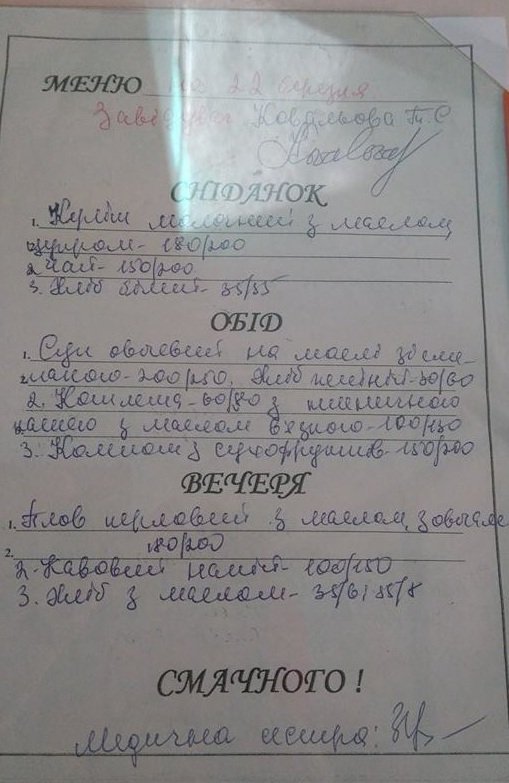 МЕНЮ на 22 серпня
Завідувач Ковальова Т. С
СНІДАНОК
1. Куліш молочний з маслом,
цукром - 180/200
2. Чай - 150/200
3. Хліб білий - 35/55
ОБІД
1. Суп овочевий на маслі зі сме-
2. таною - 200/250, Хліб житній - 30/60
2. Котлета - 60/80 з пшеничною
кашою з маслом в'язкою - 100/130
3. Компот з сухофруктів - 150/200
ВЕЧЕРЯ
1. Плов перловий з маслом, з овочами
2. 180/200
2. Кавовий напій - 100/150
3. Хліб з маслом - 35/6; 55/8
СМАЧНОГО !
Медична сестра: